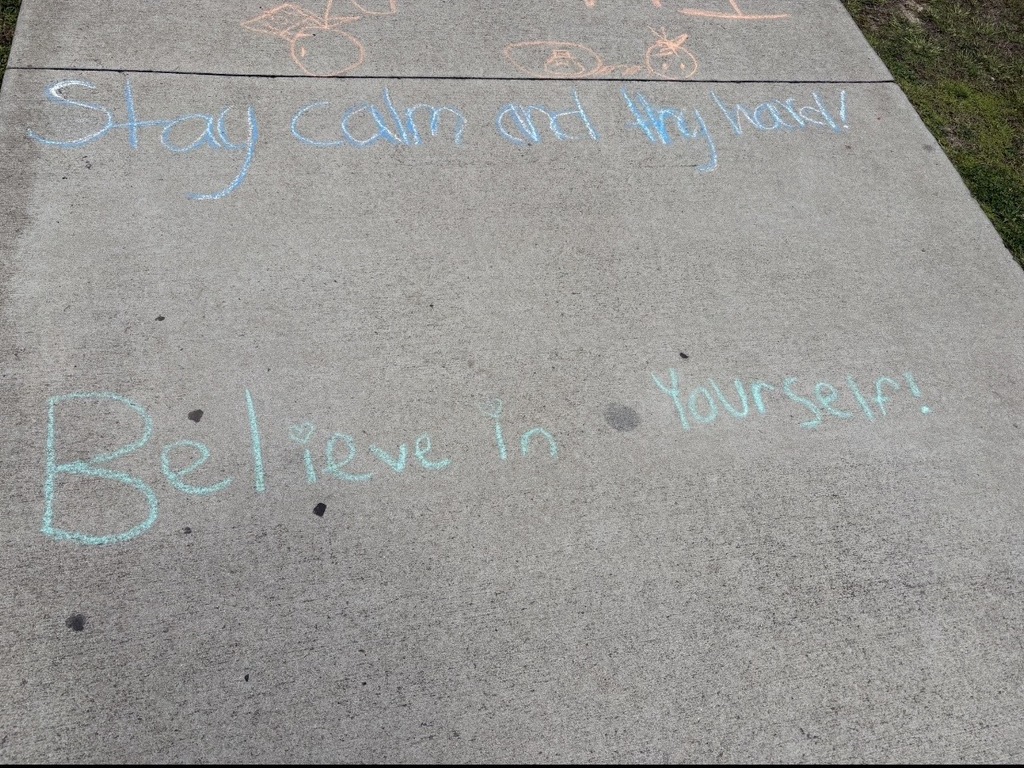 Stay calm and try hard!
Believe in Yourself!